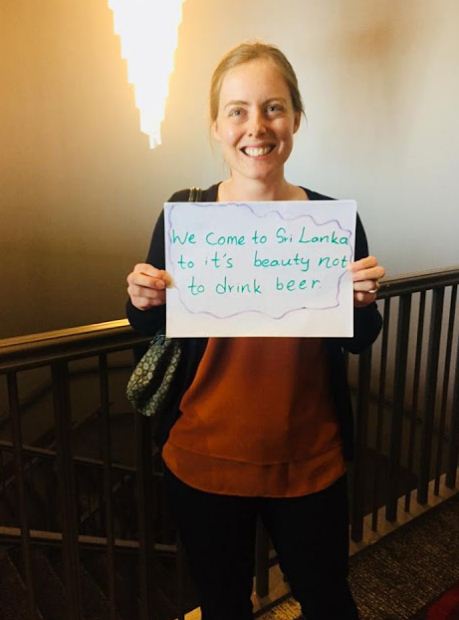 We Come to Sri Lanka
to it's beauty not
to drink beer.